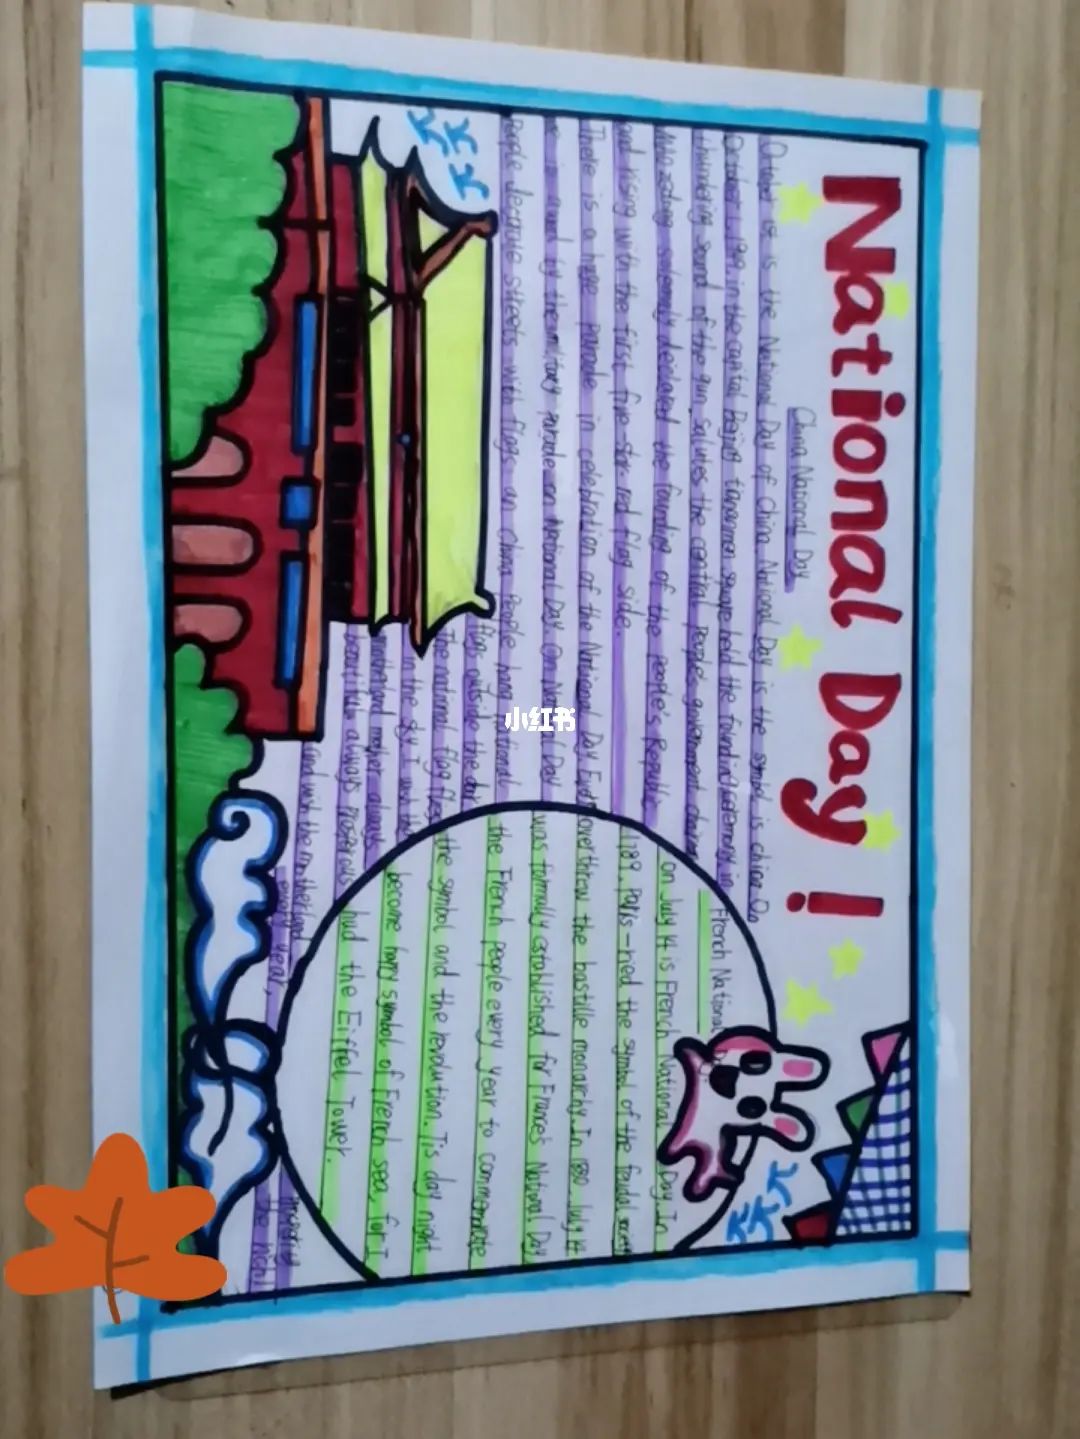 National Day!
China National Day
October 1st is the National Day of China. National Day is the symbol is china. On
October 1, 1949, in the capital Beijing tiananmen square held the founding ceremony in
thundering sound of the gun salutes the central people's government chairman
Mao zedong solemnly declared the founding of the people's Republic
and rising with the first five-star red flag side.
There is a huge parade in celebration of the National Day Even
by the military parade on National Day. On National Day
People decorate streets with flags on China People hang national
flags outside the door
The national flag flies
in the sky I wish the
motherland mother always
beautiful always prosperous
and wish the motherland
every year,
the night
French National Day
on July 14 is French National Day. In
1789. Paris-ried the symbol of the feudal
overthrew the bastille monarchy. In 1880. July 14
was formally established for France's National Day
the French people every year to commemorate
the symbol and the revolution. Tis day night
become happy symbol of French sea, for I
had the Eiffel Tower.
小红书